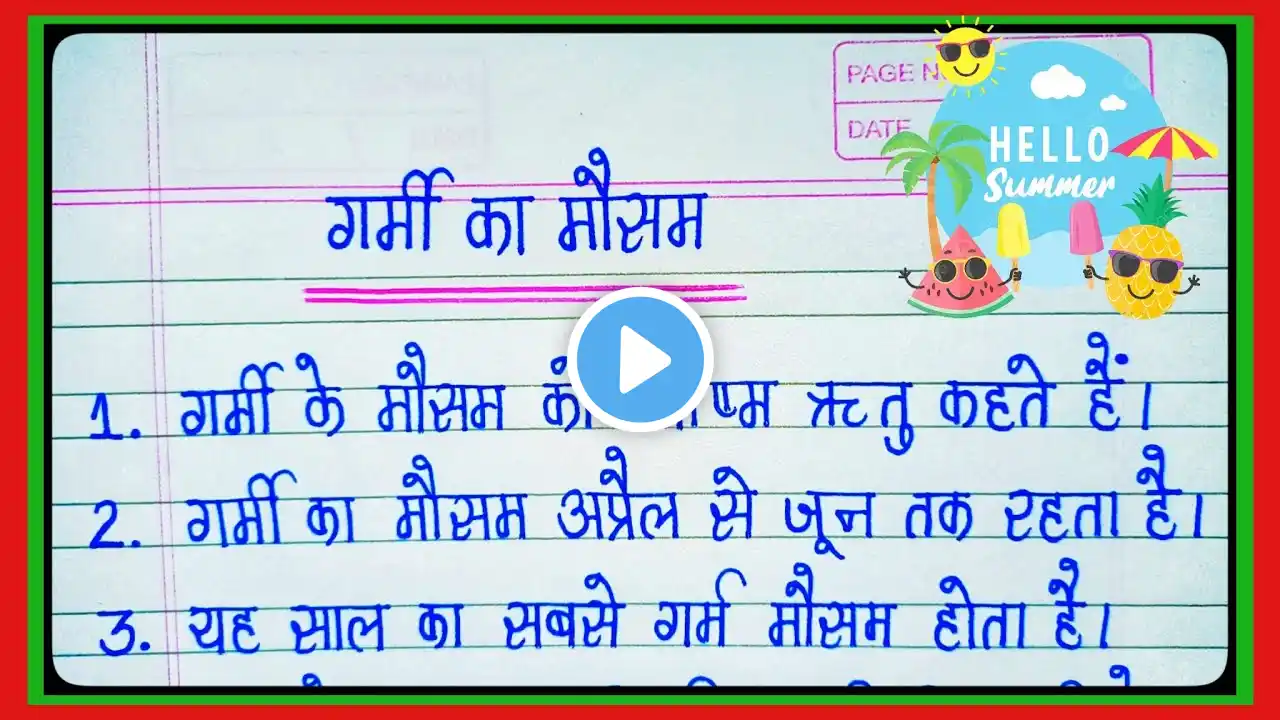 PAGE
DATE
HELLO
Summer
गर्मी का मौसम
1. गर्मी के मौसम को ऋतु कहते हैं।
2. गर्मी का मौसम अप्रैल से जून तक रहता है।
3. यह साल का सबसे गर्म मौसम होता है।